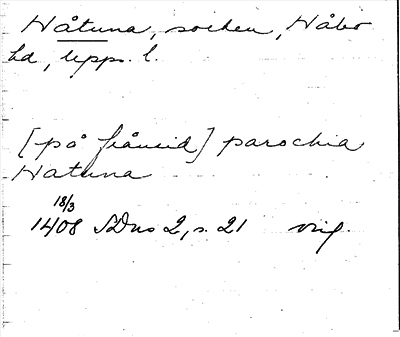 Håtuna, socken, Håbo
hd, Upps. l.
[på frånsid] parochia
Hatuna
18/3
1408 SDns 2, s. 21 orig.